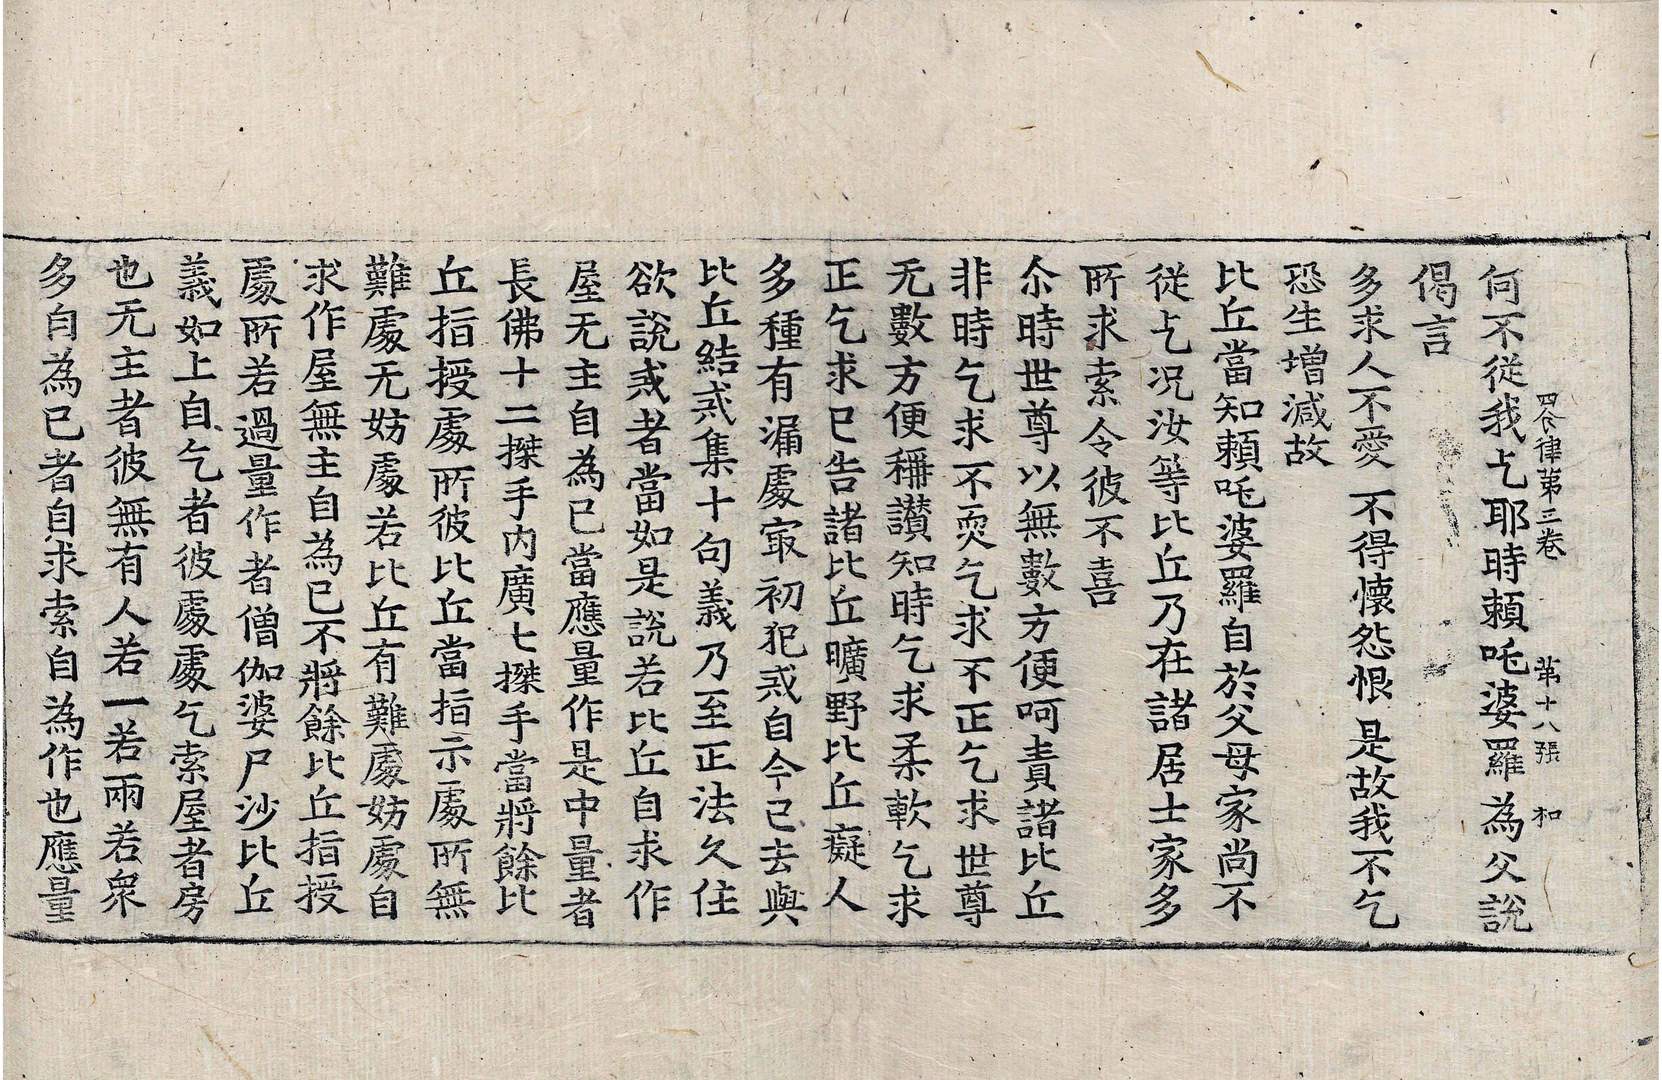 四分律第三卷 第十八張 和
何不從我乞耶時賴吒婆羅為父說
偈言
多求人不愛 不得懷怨恨 是故我不乞
恐生增減故
比丘當知賴吒婆羅自於父母家尚不
從乞况汝等比丘乃在諸居士家多
所求索令彼不喜
尒時世尊以無數方便呵責諸比丘
非時乞求不耎乞求不正乞求世尊
无數方便稱讃知時乞求柔軟乞求
正乞求已告諸比丘曠野比丘癡人
多種有漏處冣初犯戒自今已去與
比丘結戒集十句義乃至正法久住
欲說戒者當如是說若比丘自求作
屋无主自為已當應量作是中量者
長佛十二搩手內廣七搩手當將餘比
丘指授處所彼比丘當指示處所無
難處无妨處若比丘有難處妨處自
求作屋無主自為已不將餘比丘指授
處所若過量作者僧伽婆尸沙比丘
義如上自乞者彼處處乞索屋者房
也无主者彼無有人若一若兩若衆
多自為已者自求索自為作也應量